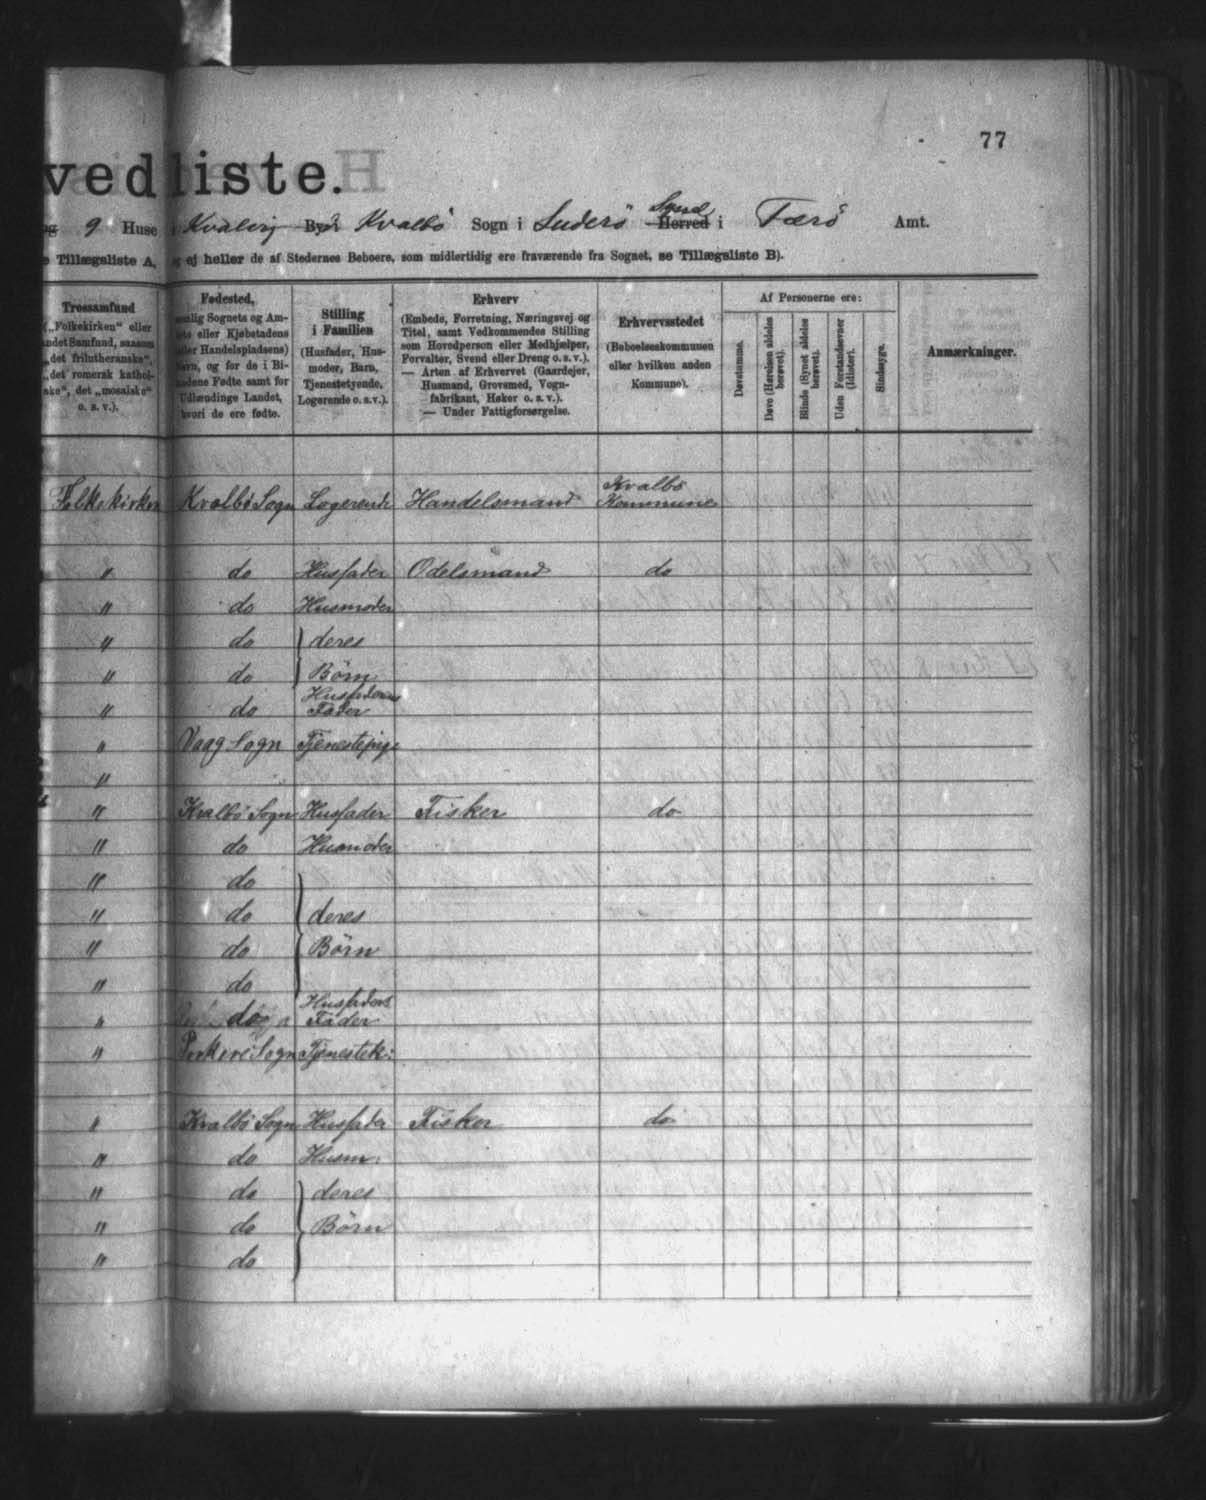 77
vedliste.
og 9 Huse i Kvalvig By i Kvalbö Sogn i Suderö Syssel Herred i Færö Amt.
e Tillægsliste A, og ej heller de af Stedernes Beboere, som midlertidig ere fraværende fra Sognet, se Tillægsliste B).
Trossamfund
(„Folkekirken“ eller
andet Samfund, saasom
„det frilutheranske“,
„det romersk kathol-
ske“, det „mosaiske“
o. s. v.).
Fødested,
nemlig Sognets og Am-
tets eller Kjøbstadens
(eller Handelspladsens)
Navn, og for de i Bi-
landene Fødte samt for
Udlændinge Landet,
hvori de ere fødte.
Stilling
i Familien
(Husfader, Hus-
moder, Barn,
Tjenestetyende,
Logerende o. s. v.).
Erhverv
(Embede, Forretning, Næringsvej og
Titel, samt Vedkommendes Stilling
som Hovedperson eller Medhjælper,
Forvalter, Svend eller Dreng o. s. v.).
— Arten af Erhvervet (Gaardejer,
Husmand, Grovsmed, Vogn-
fabrikant, Høker o. s. v.).
— Under Fattigforsørgelse.
Erhvervsstedet
(Beboelseskommunen
eller hvilken anden
Kommune).
Af Personerne ere:
Døvstumme.
Døve (Hørelsen aldeles
berøvet).
Blinde (Synet aldeles
berøvet).
Uden Forstandsevner
(Idioter).
Sindssyge.
Anmærkninger.
Folkekirken Kvalbö Sogn Logerende Handelsmand Kvalbö Kommune
" do Husfader Odelsmand do
" do Husmoder
" do } deres
" do } Börn
" do Husfaderens Fader
" Vaag Sogn Tjenestepige
"
" Kvalbö Sogn Husfader Fisker do
" do Husmoder
" do
" do } deres
" do } Börn
" do
" do Husfaders Fader
" Porkere Sogn Tjenestek:
" Kvalbö Sogn Husfader Fisker do
" do Husm:
" do } deres
" do } Börn
" do